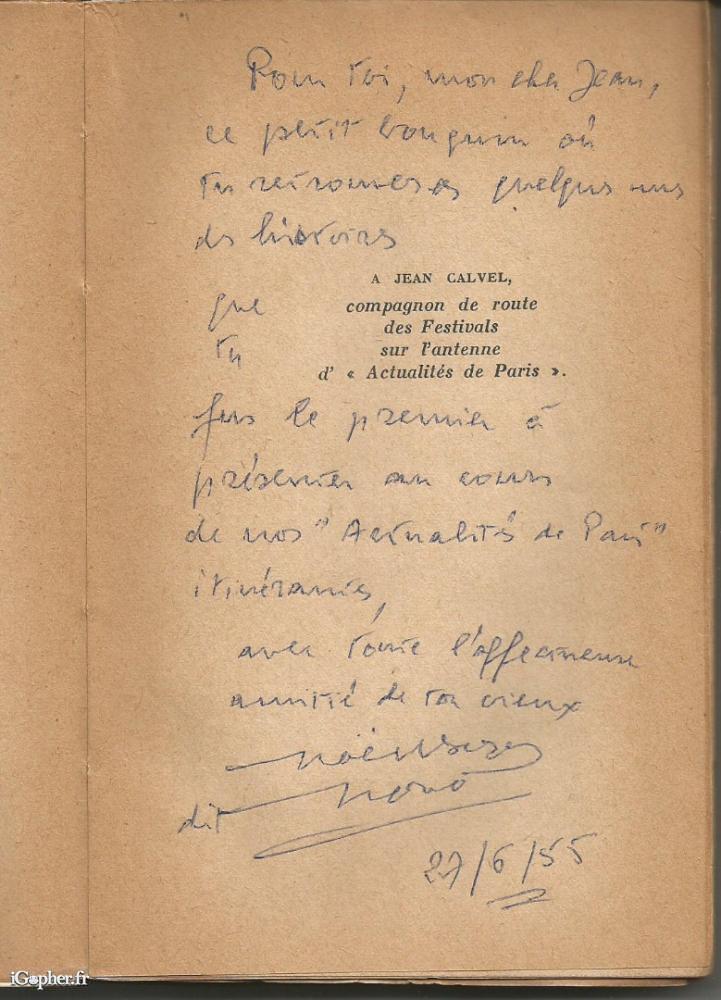 Pour toi, mon cher Jean,
ce petit bouquin où
tu retrouveras quelques unes
des histoires
A JEAN CALVEL,
compagnon de route
des Festivals
sur l'antenne
d' « Actualités de Paris ».
que
tu
fus le premier à
présenter au cours
de nos "Actualités de Paris"
itinérantes,
avec toute l'affectueuse
amitié de ton vieux
dit
27/6/55
iGopher.fr